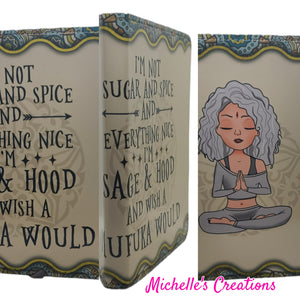 I'M NOT
AND SPICE
AND
THING NICE
I'M
& HOOD
WISH A
KA WOULD
I'M NOT
SUGAR AND SPICE
AND
EVERYTHING NICE
I'M
SAGE & HOOD
AND WISH A
UFUKA WOULD
Michelle's Creations